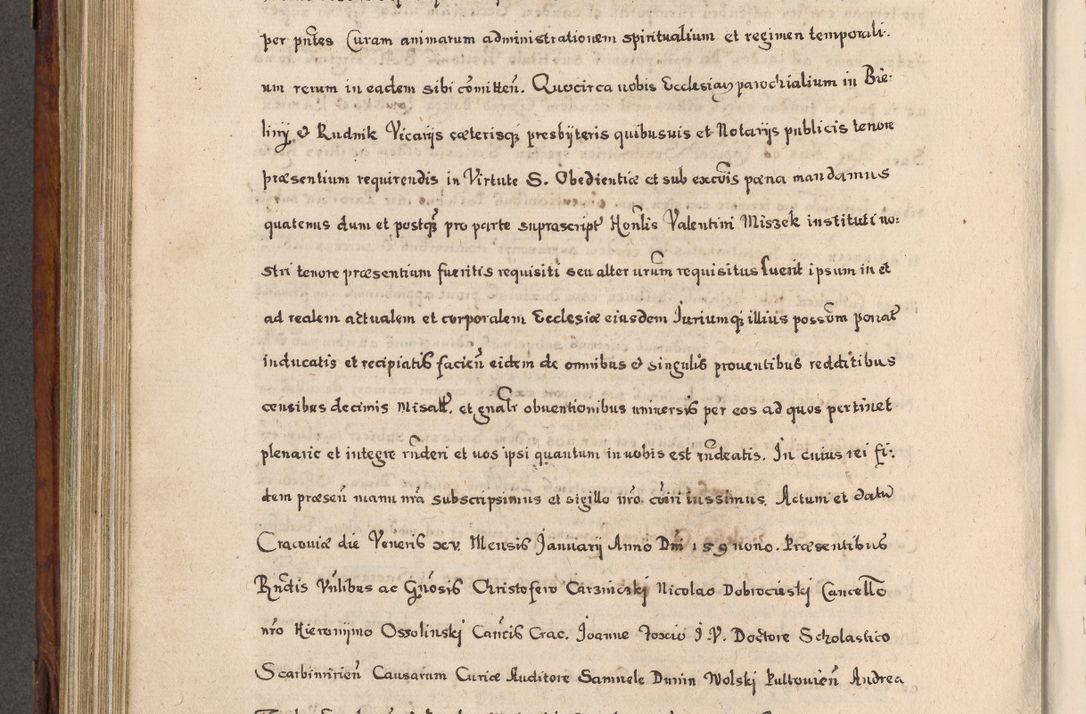 per pńtes Curam animarum administrationem spiritualium et regimen temporali:
um rerum in eadem sibi cōmitteń. Quocirca uobis Ecclesiaꝝ parochialium in Bie:
liny & Rudnik Vicarijs cæterisqꝫ presbyteris quibusuis et Notarijs publicis tenore
præsentium requirendis in Virtute S. Obedientiæ et sub excōis pæna mandamus
quatenus dum et postqꝫ pro parte suprascript Honlis Valentini Miszek instituti no:
stri tenore præsentium fueritis requisiti seu alter urūm requisitus fuerit ipsum in et
ad realem actualem et corporalem Ecclesiæ eiusdem Juriumqꝫ illius possōm ponat
inducatis et recipiatis facień eidem de omnibus & singulis prouentibus redditibus
censibus decimis Misall. et gnalr obuentionibus uniuersis per eos ad quos pertinet
plenarie et integre rńderi et uos ipsi quantum in uobis est rńdeatis. In cuius rei fi:
dem præseń manu nrā subscripsimus et sigillo nrō cōiri iussimus. Actum et datū
Cracouiæ die Veneris xv. Mensis Januarij Anno Dńi 159 nono. Præsentibus
Rńdis Vńlibus ac Gńosis Christofero Carzniczkj Nicolao Dobrocieskj Cancello
nrō Hieronijmo Ossolinskj Cantis Crac. Joanne Foxio J. V. Doctore Scholastico
Scarbimirień Causarum Curiæ Auditore Samuele Dunin Wolskj Pultouień Andrea